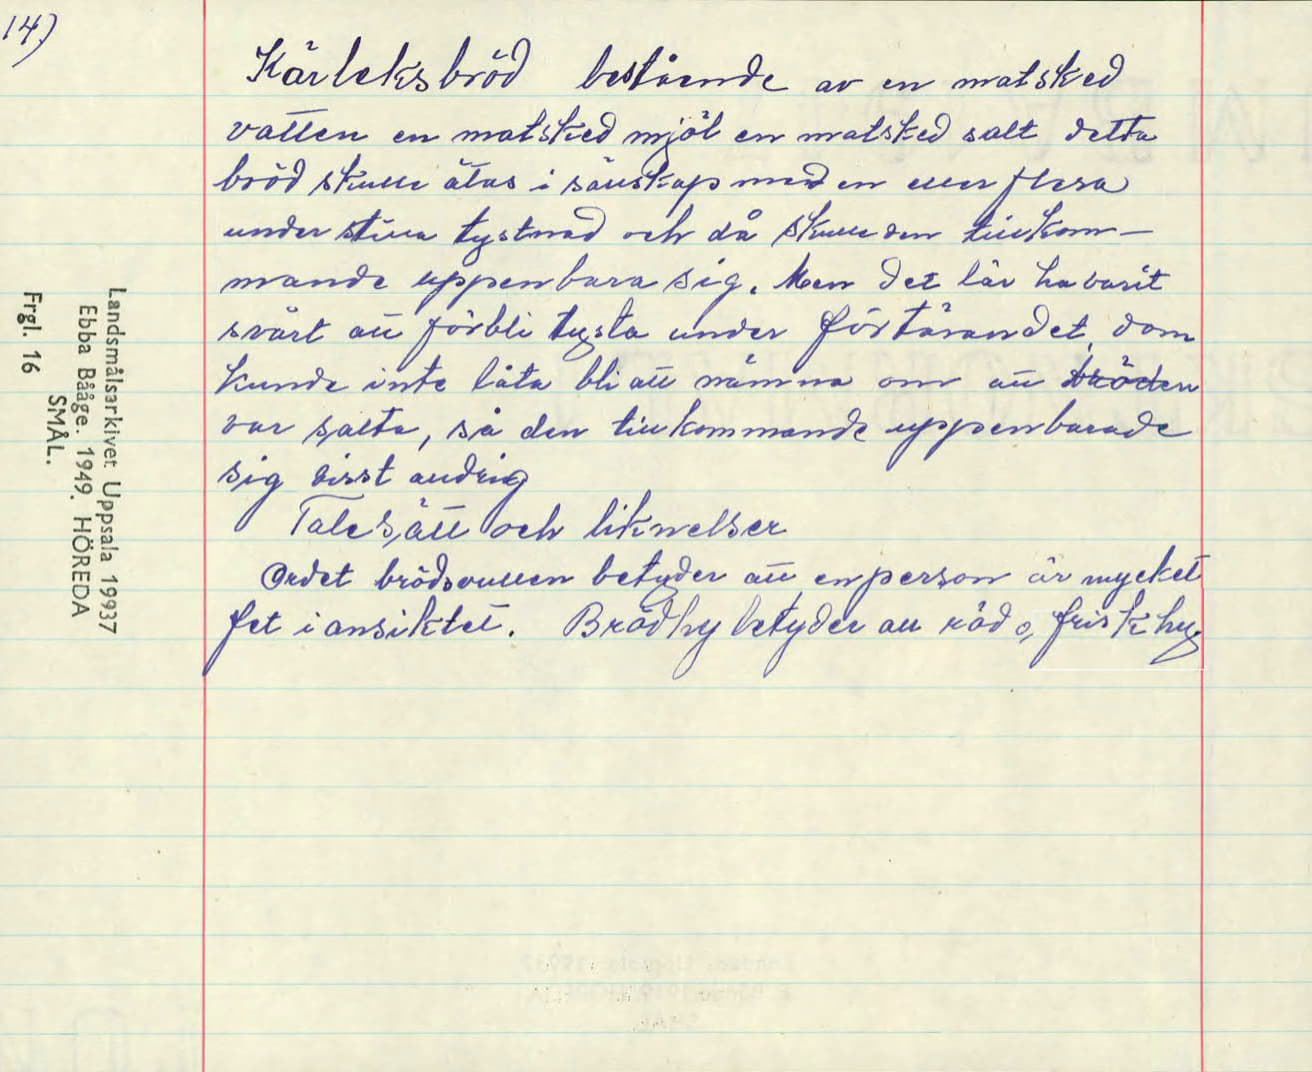 14)
Kärleksbröd bestående av en matsked
vatten en matsked mjöl en matsked salt detta
bröd skulle ätas i sällskap med en eller flera
under stilla tystnad och då skulle den tillkom-
mande uppenbara sig. Men det lär ha varit
svårt att förbli tysta under förtärandet, dom
kunde inte låta bli att nämna om att bröden
var salta, så den tillkommande uppenbarade
sig visst aldrig
Talesätt och liknelser
Ordet brödsvullen betyder att en person är mycket
fet i ansiktet. Brödhy betyder att röd o, frisk hy.
Landsmålsarkivet Uppsala 19937
Ebba Bååge. 1949. HÖREDA
SMÅL.
Frgl. 16